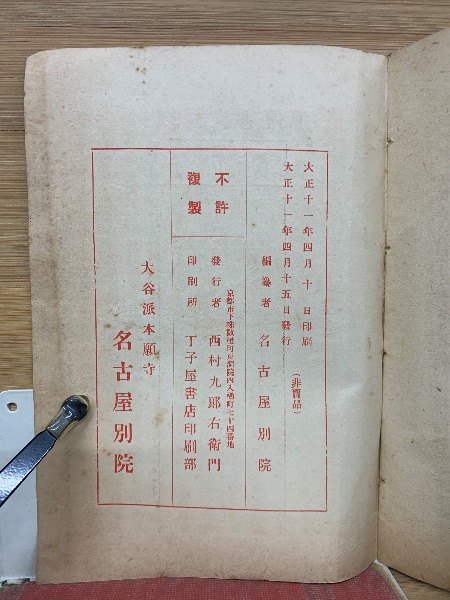 大正十一年四月十日印刷
大正十一年四月十五日發行
(非賣品)
編纂者 名古屋別院
不許
複製
發行者 西村九郎右衞門
印刷所 丁子屋書店印刷部
大谷派本願寺
名古屋別院